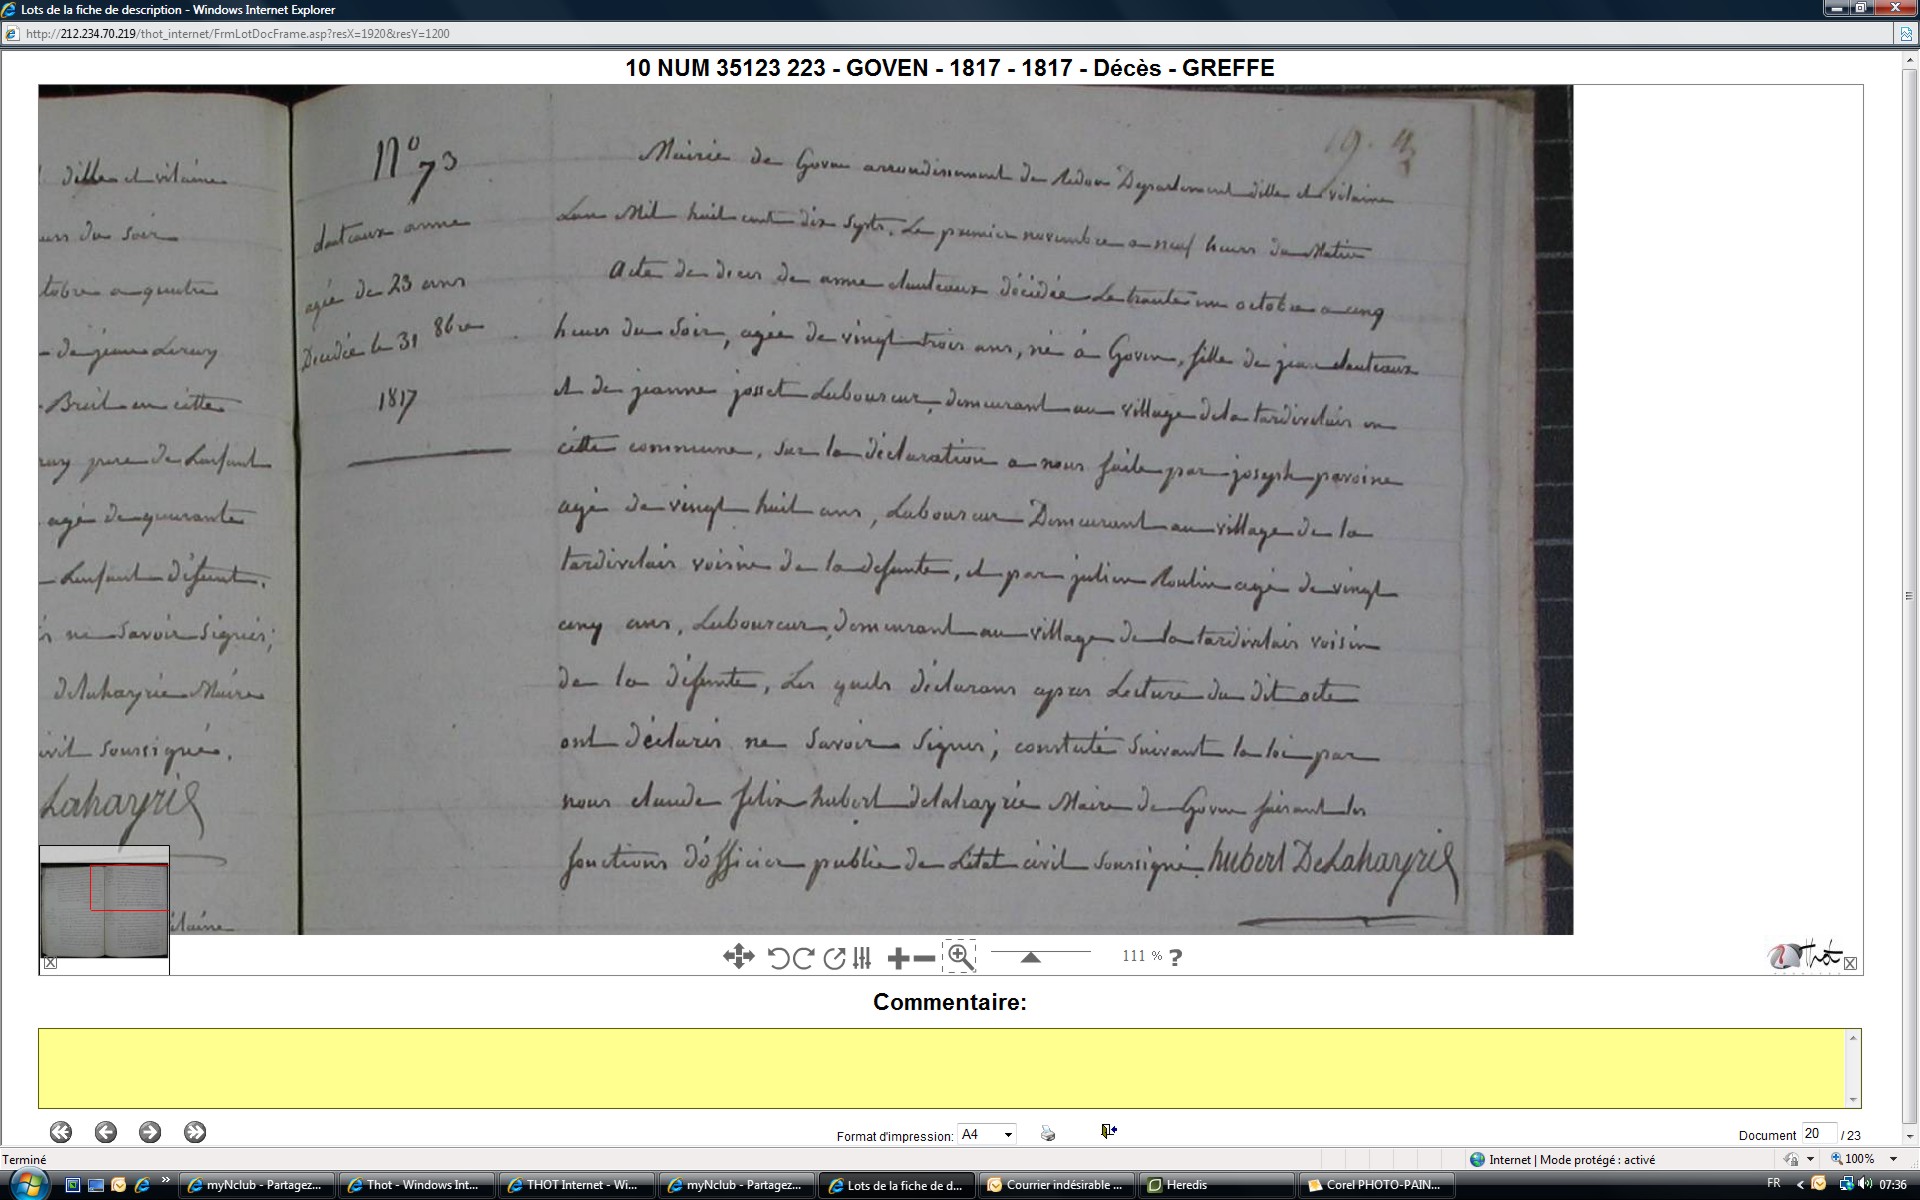 Lots de la fiche de description - Windows Internet Explorer
http://212.234.70.219/thot_internet/FrmLotDocFrame.asp?resX=1920&resY=1200
10 NUM 35123 223 - GOVEN - 1817 - 1817 - Décès - GREFFE
dille et vilaine
du soir
a quatre
de jeanne
Breil en cette
pere de Lenfant
agé de quarante
Lenfant défunt.
ne Savoir Signés;
delahayrie Maire
civil soussigné.
Lahayrie
ilaine
N° 73
anne
agée de 23 ans
Décédée le 31 8bre
1817
Mairie de Goven arrondissement de Redon Departement dille et vilaine
Lan Mil huit cent dix Septs, Le premier novembre a neuf heures du Matin
Acte de deces de anne décédée Le trante un octobre a cinq
heures du Soir, agée de vingt trois ans, né à Goven, fille de jean
et de jeanne josset Laboureur, demeurant au village de la tardivelais en
cette commune, Sur la déclaration a nous faite par joseph
agé de vingt huit ans, Laboureur Demeurant au village de la
tardivelais voisin de la defunte, et par julien Roulin agé de vingt
cinq ans, Laboureur, demeurant au village de la tardivelais voisin
de la défunte, Les quels déclarans apres Lecture du dit acte
ont déclarés ne Savoir Signer; constaté Suivant la loi par
nous claude felix hubert delahayrie Maire de Goven faisant les
fonctions d'officier public de Létat civil soussigné. hubert DeLahayrie
111 % ?
Thot
Commentaire:
Format d'impression: A4
Document 20 / 23
Terminé
Internet | Mode protégé : activé
100%
myNclub - Partagez...
Thot - Windows Int...
THOT Internet - Wi...
myNclub - Partagez...
Lots de la fiche de d...
Courrier indésirable ...
Heredis
Corel PHOTO-PAIN...
FR
07:36